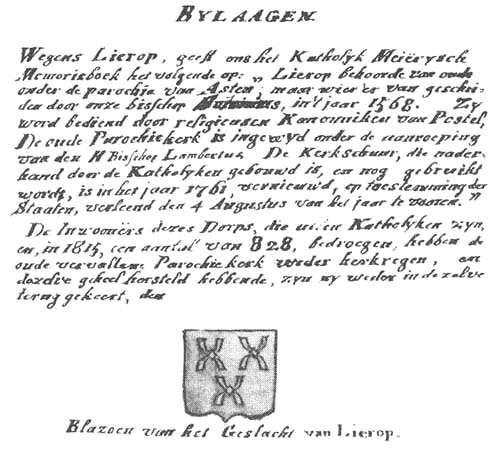 BYLAAGEN.
Wegens Lierop, geeft ons het Katholyk Meiërysch
Memorieboek het volgende op: „Lierop behoorde van ouds
onder de parochie van Asten, maar wier er van geschei-
den door onze bisschop in't jaar 1568. Zy
word bediend door religieusen Kanonniken van Postel,
De oude Parochiekerk is ingewyd onder de aanroeping
van den H Bisschop Lambertus, De Kerkschuur, die nader-
hand door de Katholyken gebouwd is, en nog gebruikt
wordt, is in het jaar 1761, vernieuwd, op toestemming der
Staaten, verleend den 4 Augustus van het jaar te vooren."
De Inwooners dezes Dorps, die Katholyken zyn,
en, in 1815, een aantal van 828, bedroegen, hebben de
oude vervallene Parochiekerk weder herkregen, en
dezelve geheel hersteld hebbende, zyn zy weder in dezelve
terug gekeert, den
Blazoen van het Geslacht van Lierop.